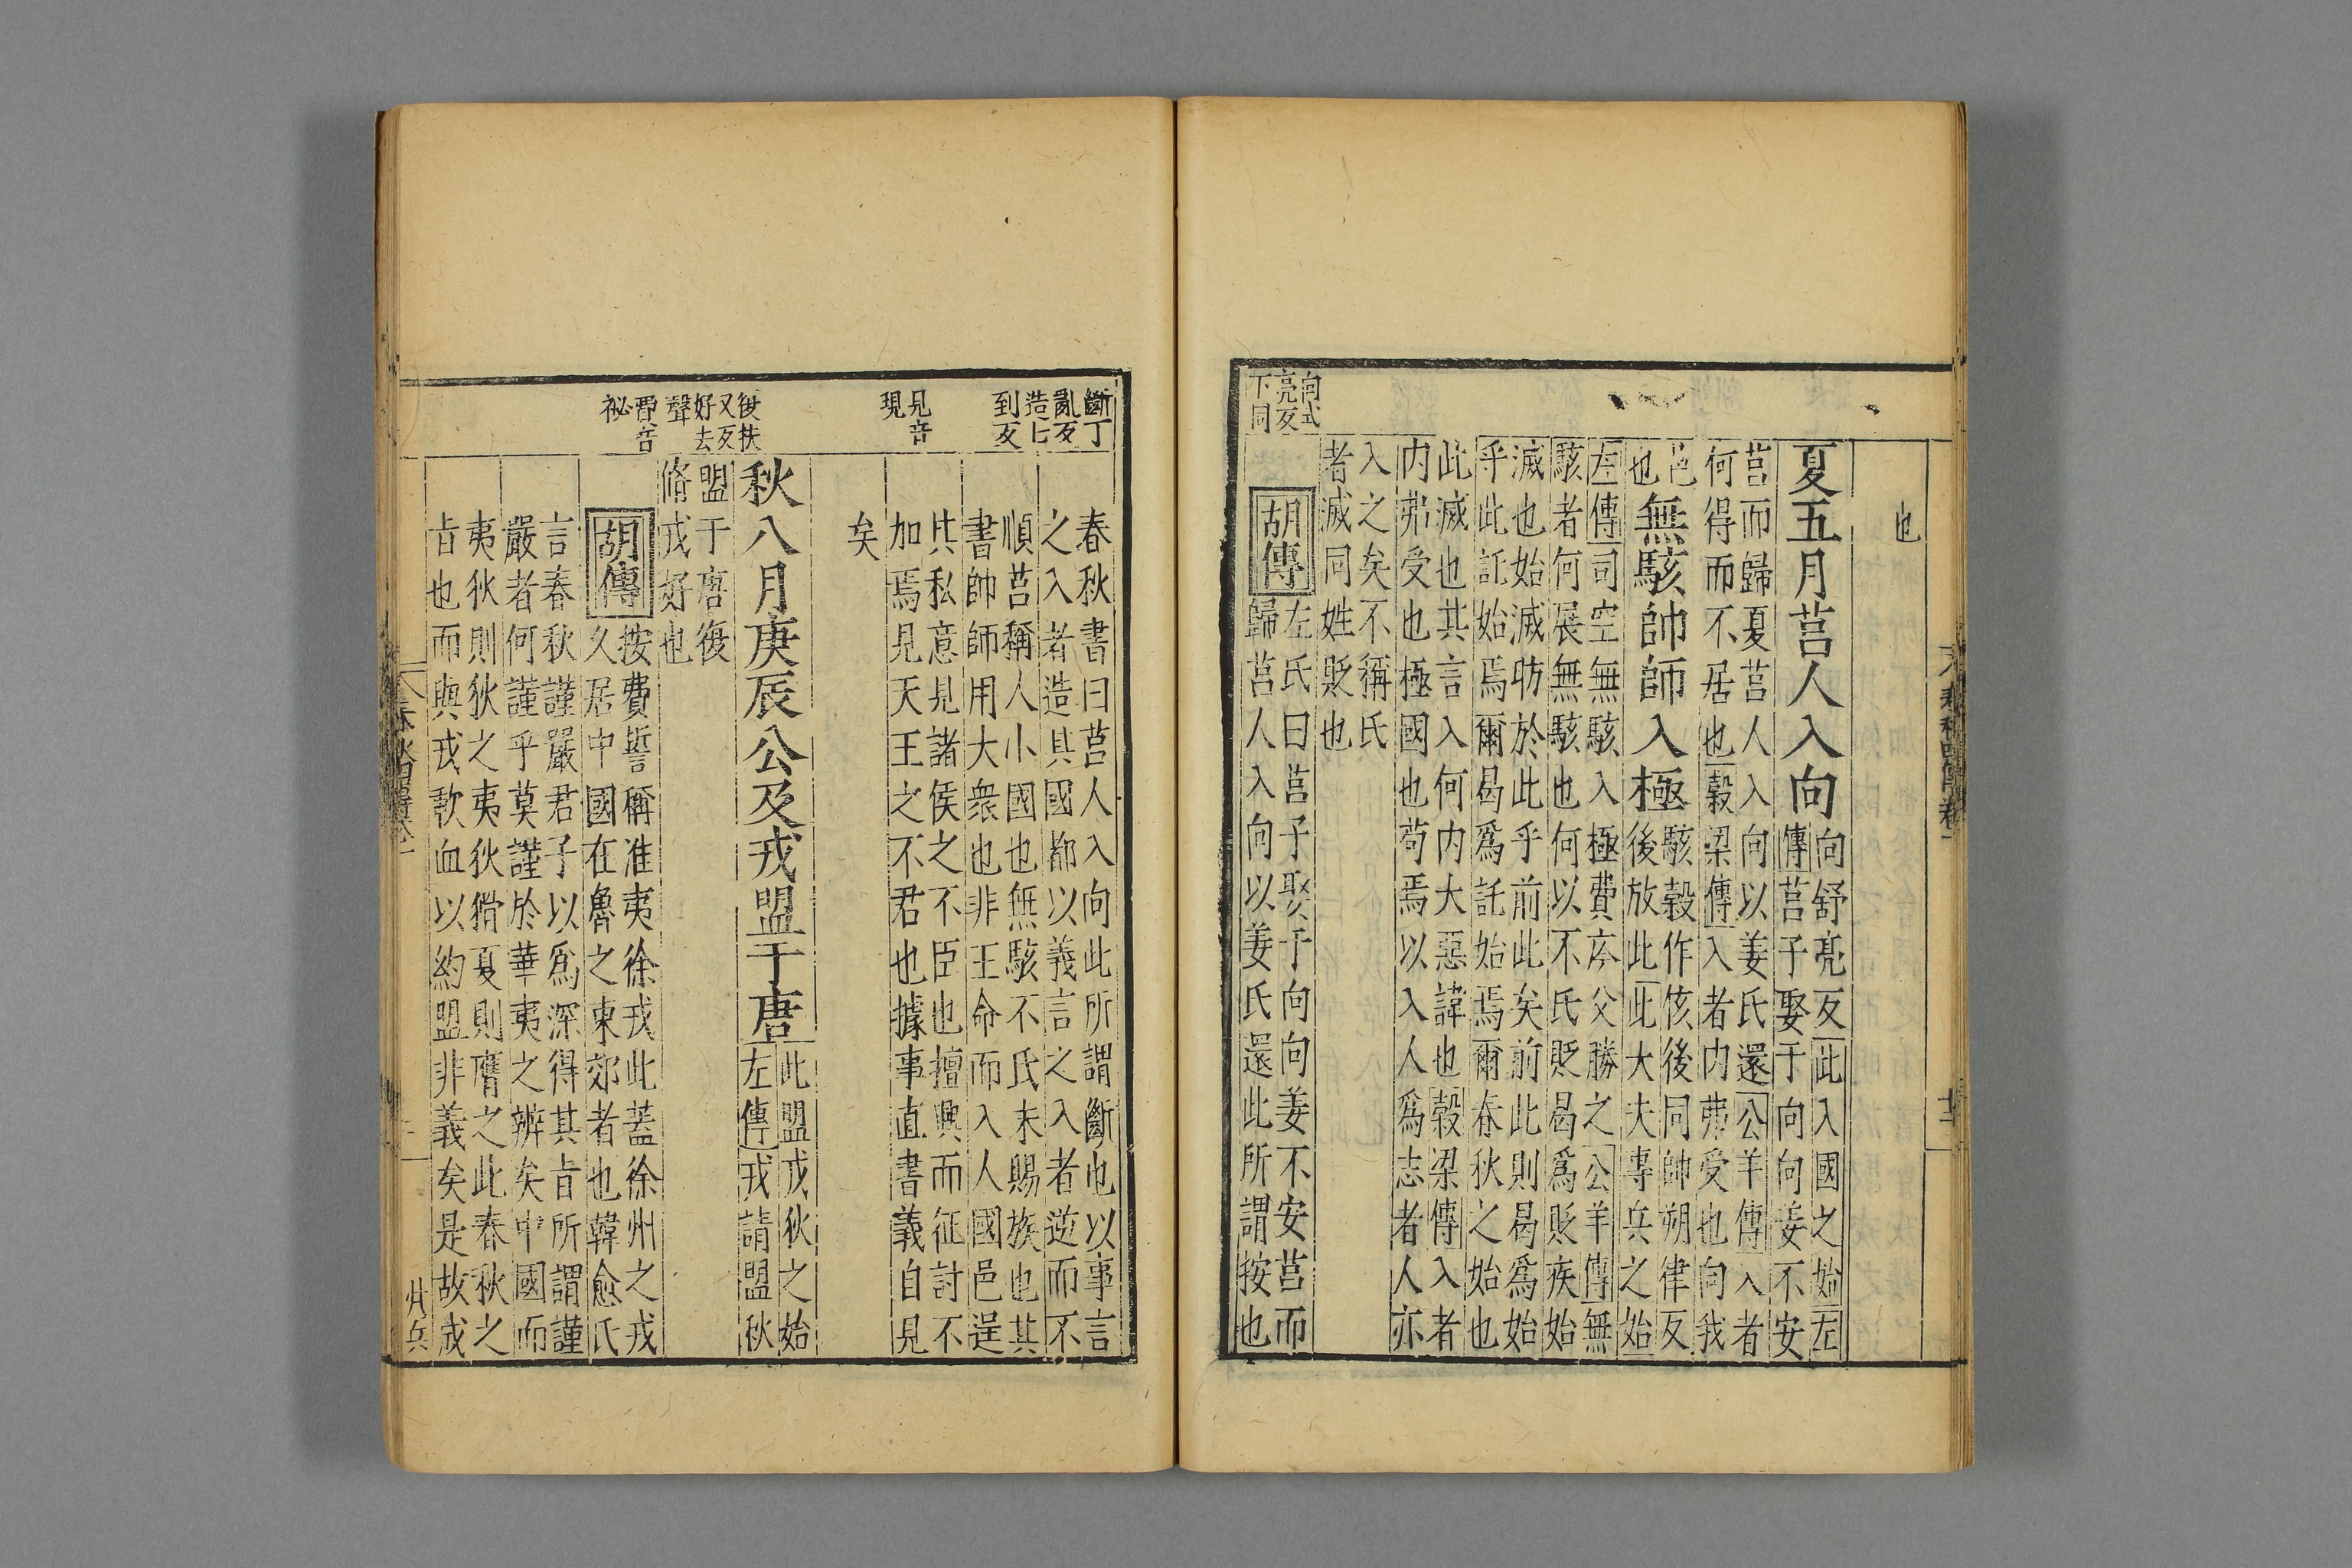 也
夏五月莒人入向
向舒亮反此入國之始左
傳莒子娶于向向姜不安
莒而歸夏莒人入向以姜氏還公羊傳入者
何得而不居也穀梁傳入者内弗受也向我
邑
也
無駭帥師入極
駭穀作侅後同帥朔律反
後放此此大夫專兵之始
左傳司空無駭入極費庈父勝之公羊傳無
駭者何展無駭也何以不氏貶曷爲貶疾始
滅也始滅昉於此乎前此矣前此則曷爲始
乎此託始焉爾曷爲託始焉爾春秋之始也
此滅也其言入何内大惡諱也穀梁傳入者
内弗受也極國也苟焉以入人爲志者人亦
入之矣不稱氏
者滅同姓貶也
向式
亮反
下同
胡傳
左氏曰莒子娶于向向姜不安莒而
歸莒人入向以姜氏還此所謂按也
斷丁
亂反
造七
到反
春秋書曰莒人入向此所謂斷也以事言
之入者造其國都以義言之入者逆而不
順莒稱人小國也無駭不氏未賜族也其
書帥師用大衆也非王命而入人國邑逞
見音
現
其私意見諸侯之不臣也擅興而征討不
加焉見天王之不君也據事直書義自見
矣
秋八月庚辰公及戎盟于唐
此盟戎狄之始
左傳戎請盟秋
復扶
又反
好去
聲
盟于唐復
脩戎好也
費音
祕
胡傳
按費誓稱淮夷徐戎此蓋徐州之戎
久居中國在魯之東郊者也韓愈氏
言春秋謹嚴君子以爲深得其旨所謂謹
嚴者何謹乎莫謹於華夷之辨矣中國而
夷狄則狄之夷狄猾夏則膺之此春秋之
旨也而與戎歃血以約盟非義矣是故成